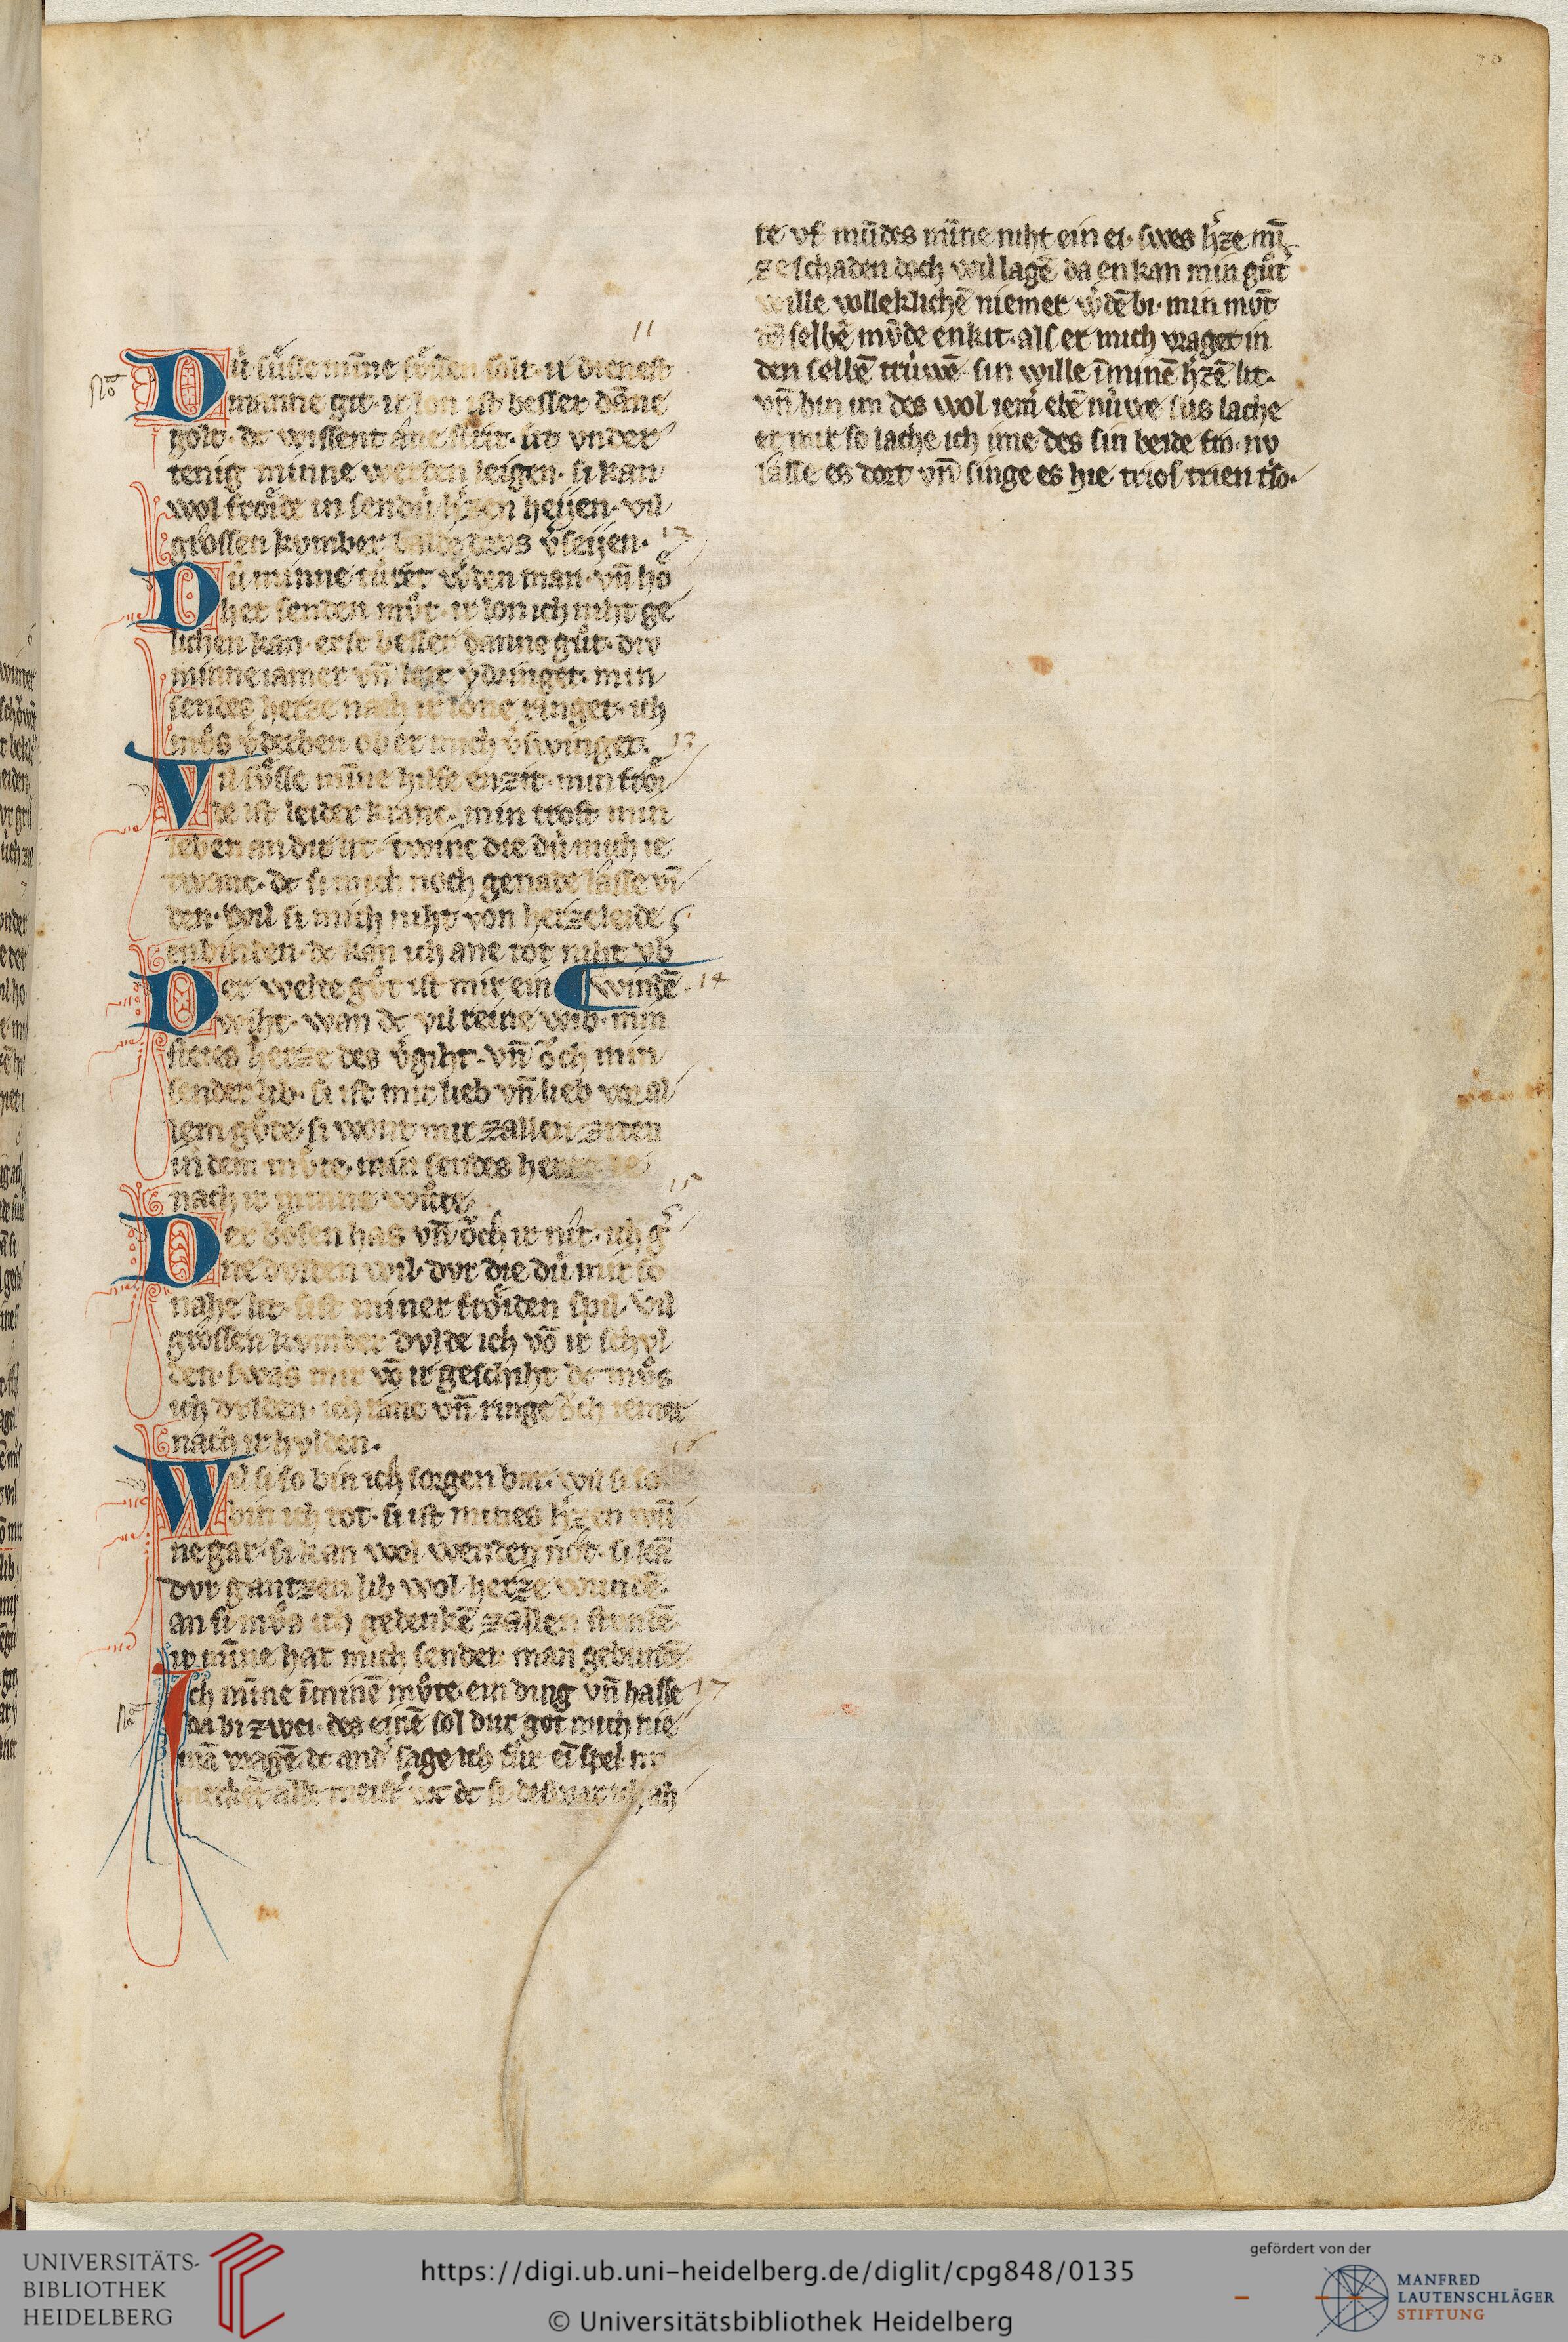 70
11
Dú sússe miñe sôsſen ſolt· ir dieneſt
manne git· ir lon iſt beſſer dãne
golt· dc wiſſent âne ſtrit· ſit vnder
tenig minne werden leigen· ſi kan
wol froͤide in ſendú hꝰzen heijen· vil
groſſen kvmber v̾ſeijen·
Dú minne túret v̾den man· vñ hoͤ
het ſenden mvͦt· ir lon ich niht ge
lichen kan· erſt beſſer danne gvͦt· div
minne iamer vñ leit v̾dringet· min
ſendes herze nach ir lone ringet· ich
mvͦs v̾derben ob er mich v̾ſwinget·
13
Vil ſvͤſſe miñe hilfe enzit· min froͤi
de iſt leider kranc· min troſt min
leben an dir lit· twinc die dú mich ie
twanc· dc ſi mich noch genade laſſe vĩ
den· wil ſi mich niht von herzeleide
enbinden· dc kan ich ane tot niht vb̾
winde·
14
Der welte gvͦt iſt mir ein
wiht· wan dc vil reine wib· min
ſtetes herze des v̾giht· vñ oͮch min
ſender lib· ſi iſt mir lieb vñ lieb vor al
lem gvͦte· ſi wont mir zallen ziten
in dem mvͦte· min ſendes
nach ir minne
15
Der boͤſen has vñ oͮch ir nit· ich g̾
ne dvlden wil· dvr die dú mir ſo
nahe lit· ſiſt miner froͤiden ſpil· vil
groſſen kvmber dvlde ich võ ir ſchvl
den· ſwas mir võ ir geſchiht dc mvͦs
ich dvlden· ich ranc vñ ringe oͮch iemer
nach ir hvlden·
16
Wil ſi ſo bin ich ſorgen bar· wil ſi ſo
bin ich tot· ſi iſt mines h̾zen wũ
ne gar· ſi kan wol wenden not· ſi kã
dvr gantzen lib wol herze wundẽ·
an ſi mvͦs ich gedenkẽ zallen ſtvndẽ·
ir miñe hat mich ſenden man gebundẽ
17
Ich miñe ĩ minẽ mvͦte ein ding vñ haſſe
da bi zwei· des einẽ ſol dur got mich nie
mã vragẽ· dc and̾ ſage ich fúr eĩ ſpel·
merkẽt alle
te vf mũdes miñe niht ein ei· ſwes h̾ze mĩ
ze ſchaden doch wil lagẽ da en kan min gvͦt̾
wille volleklichẽ niemer w̾dẽ bi· min mvͦt
dẽ ſelbẽ mvͦde enkit· alſ er mich vraget in
den ſelbẽ trúwẽ· ſin wille ĩ minẽ h̾zẽ lit·
vñ bin im des wol iem̾ ebẽ núwe ſus lache
er mir ſo lache ich ime des ſin beide fro· nv
laſſe es dort vñ ſinge es hie triol trien tſo·
UNIVERSITÄTS-
BIBLIOTHEK
HEIDELBERG
https://digi.ub.uni-heidelberg.de/diglit/cpg848/0135
© Universitätsbibliothek Heidelberg
gefördert von der
MANFRED
LAUTENSCHLÄGER
STIFTUNG